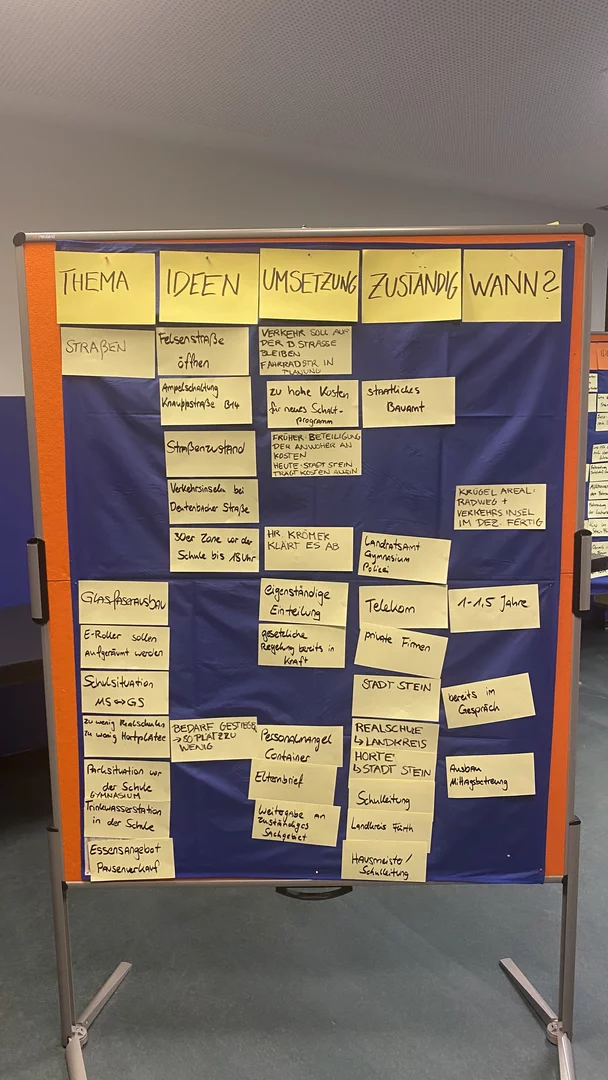 THEMA
IDEEN
UMSETZUNG
ZUSTÄNDIG
WANN?
STRAßEN
Felsenstraße
öffnen
VERKEHR SOLL AUF
DER B STRASSE
BLEIBEN
FAHRRADSTR IN
PLANUNG
Ampelschaltung
Knauppstraße B14
zu hohe Kosten
für neues Schalt-
programm
staatliches
Bauamt
Straßenzustand
FRÜHER: BETEILIGUNG
DER ANWOHER AN
KOSTEN
HEUTE: STADT STEIN
TRÄGT KOSTEN ALLEIN
Verkehrsinseln bei
Deutenbacher Straße
KRÜGEL AREAL:
RADWEG +
VERKEHRSINSEL
IM DEZ. FERTIG
30er Zone vor der
Schule bis 18 Uhr
HR. KRÖMER
KLÄRT ES AB
Landratsamt
Gymnasium
Polizei
Glasfaserausbau
eigenständige
Einteilung
Telekom
1-1,5 Jahre
E-Roller sollen
aufgeräumt werden
gesetzliche
Regelung bereits in
Kraft
private Firmen
Schulsituation
MS ↔ GS
STADT STEIN
bereits im
Gespräch
zu wenig Realschulen
zu wenig Hortplätze
BEDARF GESTIEGEN
→ 50 PLÄTZE ZU
WENIG
Personalmangel
Container
REALSCHULE
↳ LANDKREIS
HORTE
↳ STADT STEIN
Ausbau
Mittagsbetreuung
Parksituation vor
der Schule
GYMNASIUM
Elternbrief
Schulleitung
Trinkwasserstation
in der Schule
Weitergabe an
zuständiges
Sachgebiet
Landkreis Fürth
Essensangebot
Pausenverkauf
HAUSMEISTER/
Schulleitung